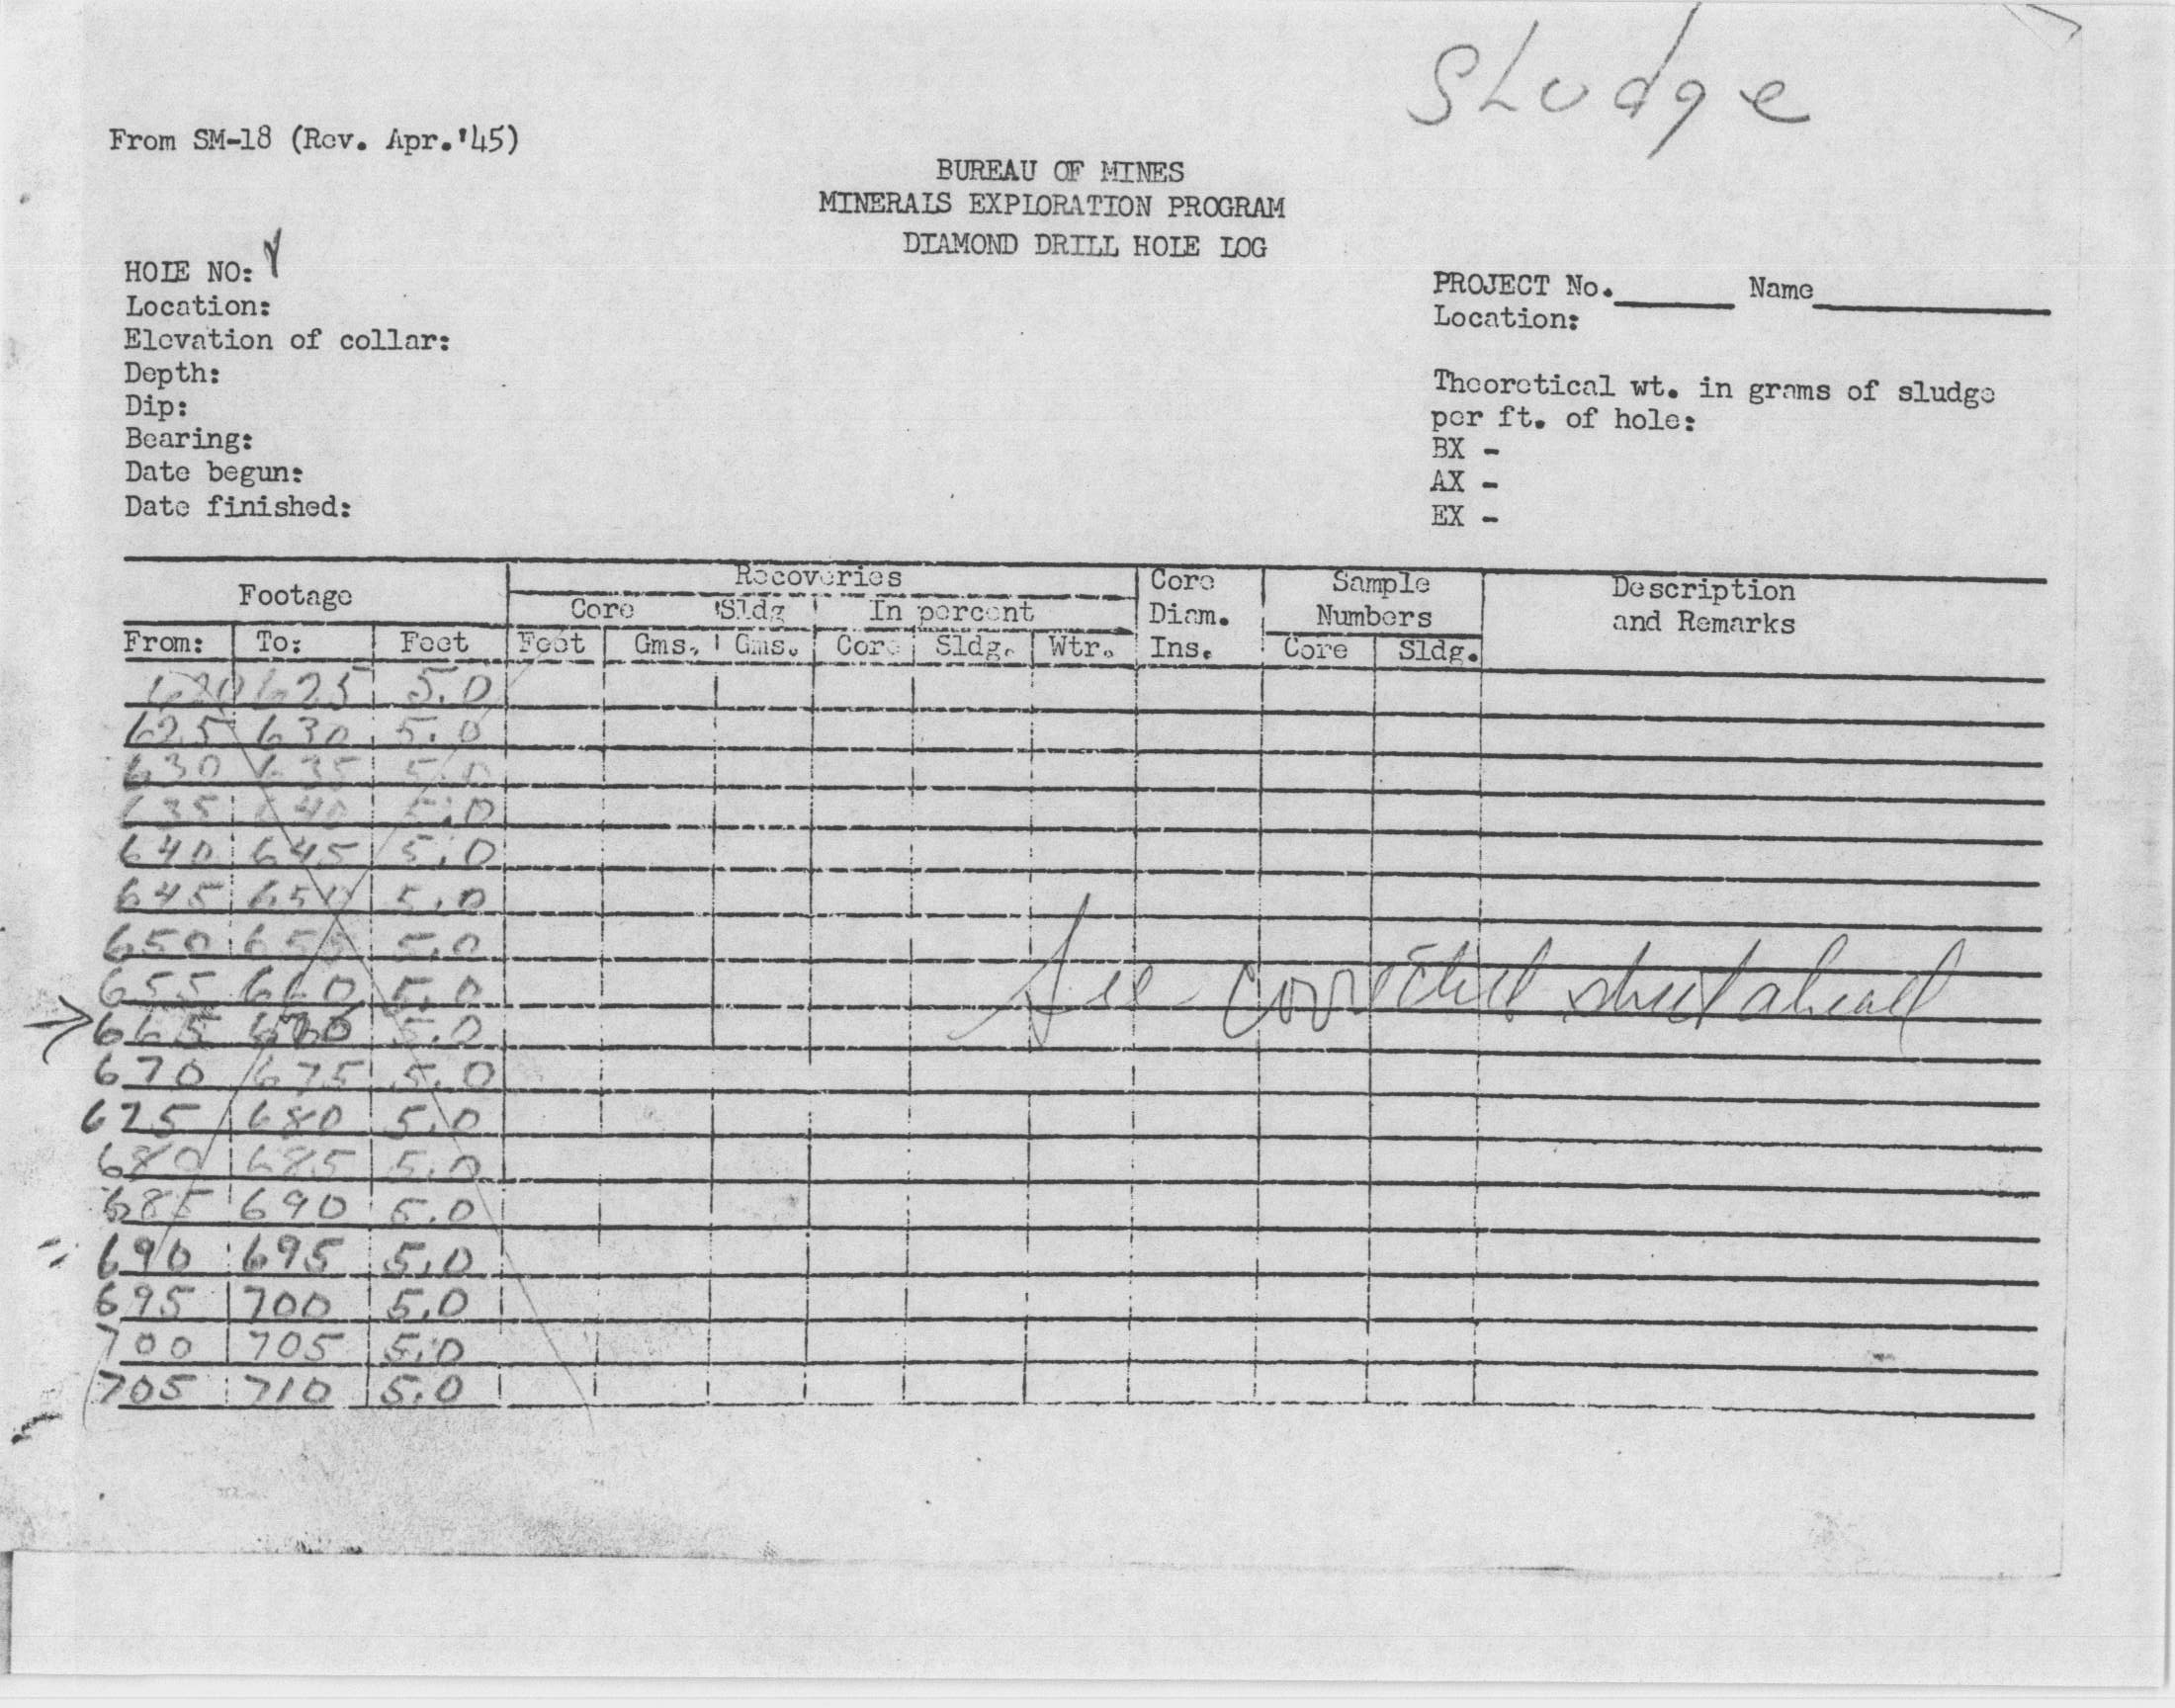 Sludge
From SM-18 (Rev. Apr.'45)
BUREAU OF MINES
MINERALS EXPLORATION PROGRAM
DIAMOND DRILL HOLE LOG
HOLE NO:
Location:
Elevation of collar:
Depth:
Dip:
Bearing:
Date begun:
Date finished:
PROJECT No. Name
Location:
Theoretical wt. in grams of sludge
per ft. of hole:
BX -
AX -
EX -
Footage Recoveries Core Sample Description
Core Sldg In percent Diam. Numbers and Remarks
From: To: Feet Feet Gms. Gms. Core Sldg. Wtr. Ins. Core Sldg.
620 625 5.0
625 630 5.0
630 635 5.0
635 640 5.0
640 645 5.0
645 650 5.0
650 655 5.0
655 660 5.0
See corrected sheet ahead
665 670 5.0
670 675 5.0
675 680 5.0
680 685 5.0
685 690 5.0
690 695 5.0
695 700 5.0
700 705 5.0
705 710 5.0